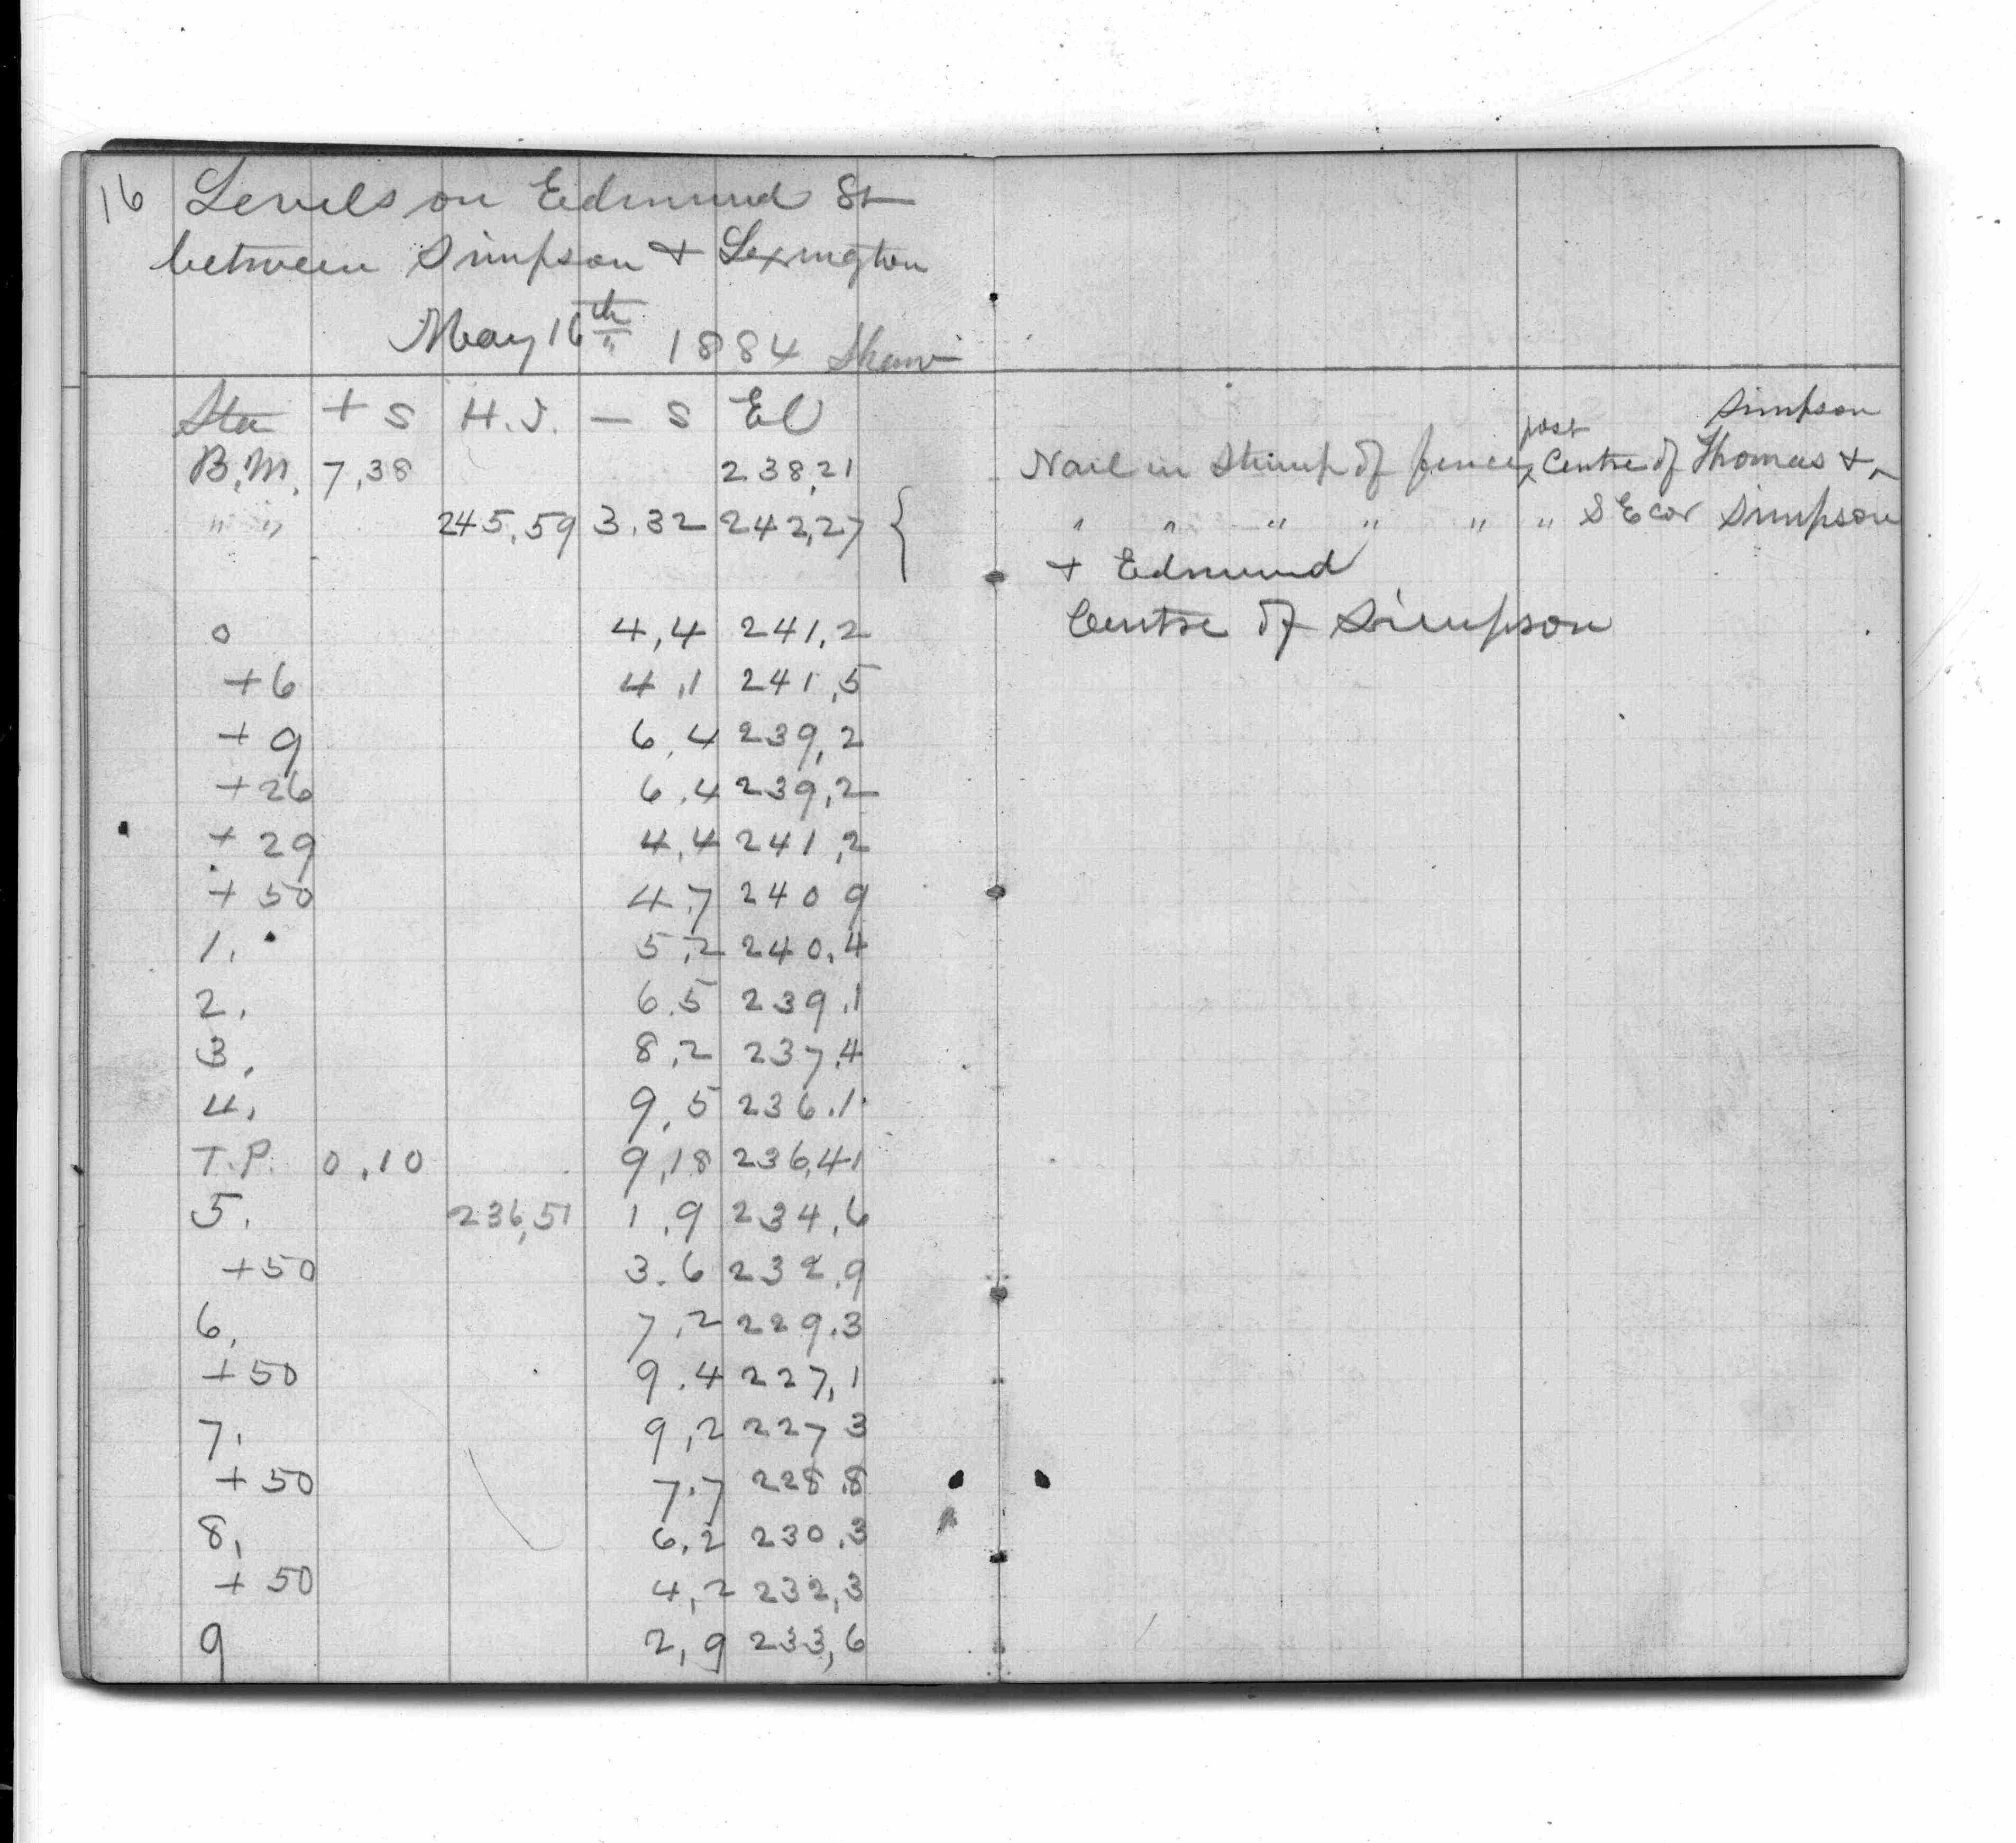 16 Levels on Edmund St
between Simpson + Lexington
May 16th 1884 Shaw
Sta + S H.I. - S El
B.M. 7,38 238,21 Nail in Stump of fence post Centre of Thomas + Simpson
" " 245,59 3,32 242,27 { " " " " " " S E cor Simpson
+ Edmund
0 4,4 241,2 Centre of Simpson
+6 4,1 241,5
+9 6,4 239,2
+26 6,4 239,2
+29 4,4 241,2
+50 4.7 240 9
1. 5,2 240.4
2. 6.5 239.1
3. 8,2 237.4
4. 9,5 236.1
T.P. 0,10 9,18 236,41
5. 236,51 1,9 234,6
+50 3.6 232,9
6. 7,2 229.3
+50 9.4 227,1
7. 9,2 227 3
+50 7.7 228.8
8, 6,2 230.3
+50 4,2 232,3
9 2,9 233,6